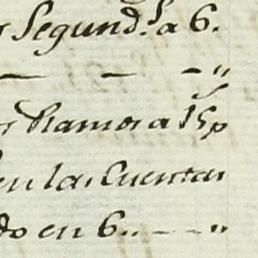 Segund.s a 6.
— — - "
Ramos a 15 p
en las Cuentas
do en 6.. — - "